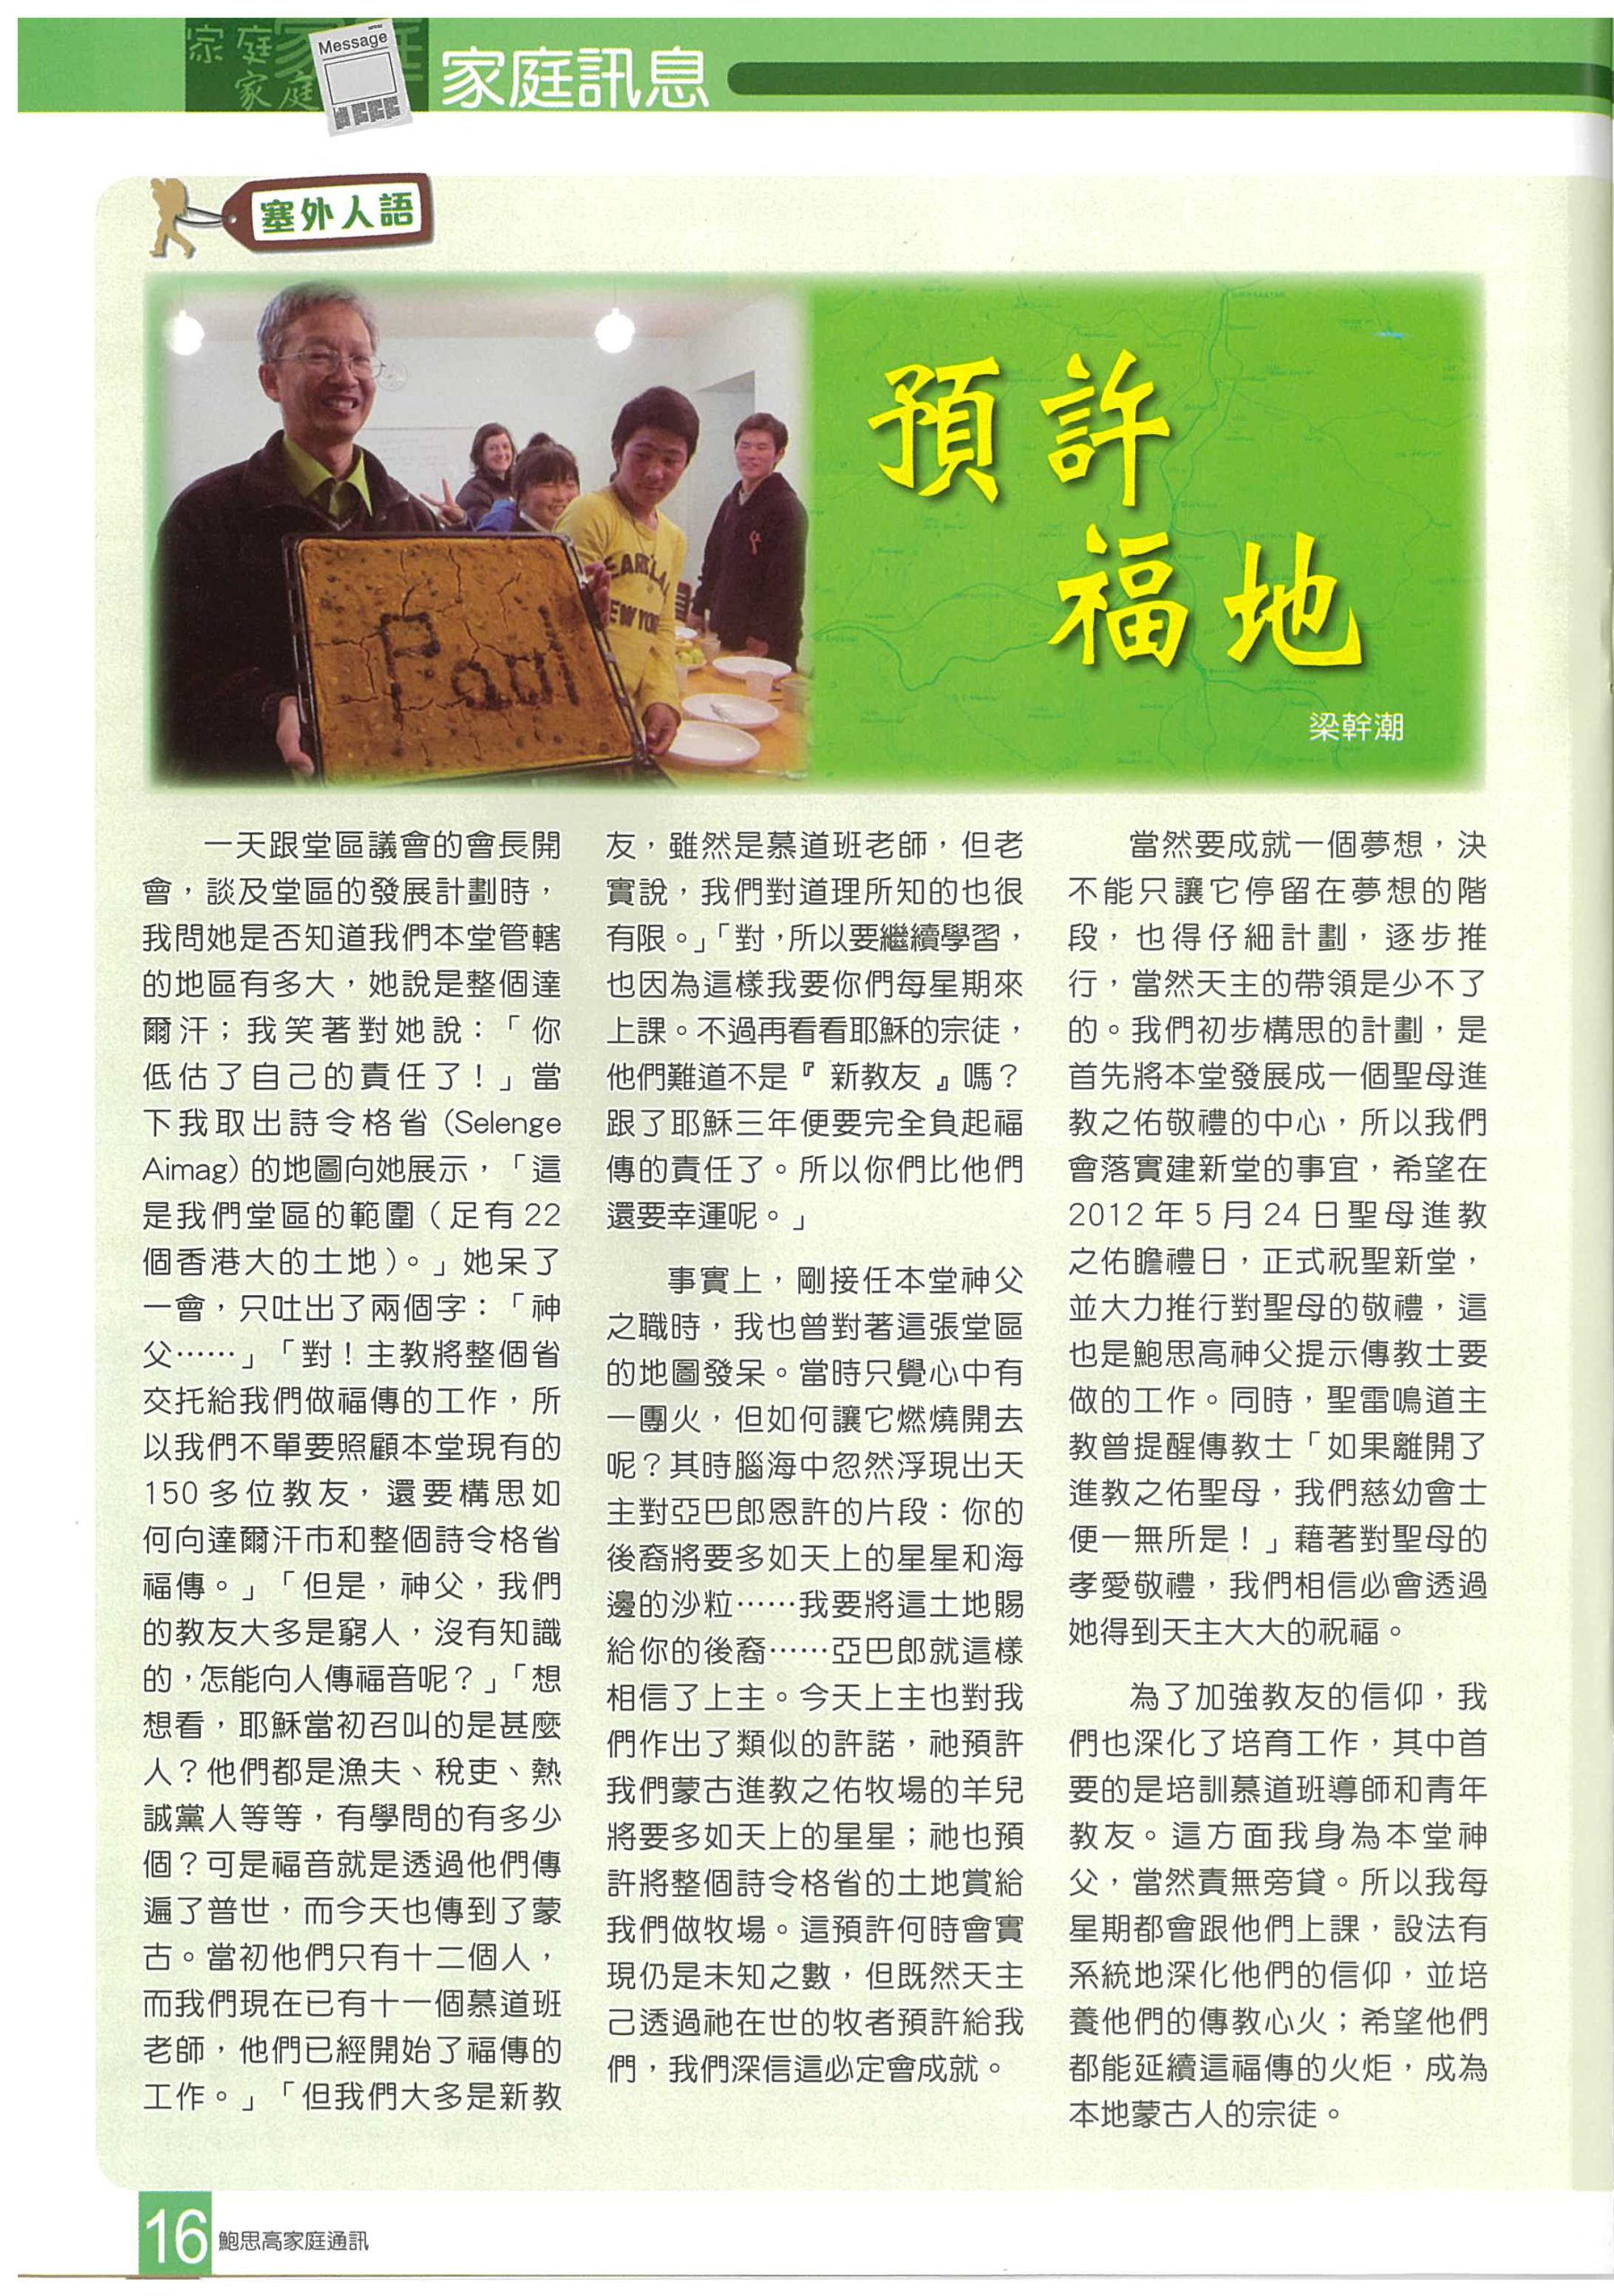 家庭
家庭
Message
家庭訊息
塞外人語
預許
福地
梁幹潮
Paul
NEW YORK
一天跟堂區議會的會長開
會，談及堂區的發展計劃時，
我問她是否知道我們本堂管轄
的地區有多大，她說是整個達
爾汗；我笑著對她說：「你
低估了自己的責任了！」當
下我取出詩令格省 (Selenge
Aimag) 的地圖向她展示，「這
是我們堂區的範圍（足有 22
個香港大的土地）。」她呆了
一會，只吐出了兩個字：「神
父……」「對！主教將整個省
交托給我們做福傳的工作，所
以我們不單要照顧本堂現有的
150 多位教友，還要構思如
何向達爾汗市和整個詩令格省
福傳。」「但是，神父，我們
的教友大多是窮人，沒有知識
的，怎能向人傳福音呢？」「想
想看，耶穌當初召叫的是甚麼
人？他們都是漁夫、稅吏、熱
誠黨人等等，有學問的有多少
個？可是福音就是透過他們傳
遍了普世，而今天也傳到了蒙
古。當初他們只有十二個人，
而我們現在已有十一個慕道班
老師，他們已經開始了福傳的
工作。」「但我們大多是新教
友，雖然是慕道班老師，但老
實說，我們對道理所知的也很
有限。」「對，所以要繼續學習，
也因為這樣我要你們每星期來
上課。不過再看看耶穌的宗徒，
他們難道不是『 新教友 』嗎？
跟了耶穌三年便要完全負起福
傳的責任了。所以你們比他們
還要幸運呢。」
事實上，剛接任本堂神父
之職時，我也曾對著這張堂區
的地圖發呆。當時只覺心中有
一團火，但如何讓它燃燒開去
呢？其時腦海中忽然浮現出天
主對亞巴郎恩許的片段：你的
後裔將要多如天上的星星和海
邊的沙粒……我要將這土地賜
給你的後裔……亞巴郎就這樣
相信了上主。今天上主也對我
們作出了類似的許諾，祂預許
我們蒙古進教之佑牧場的羊兒
將要多如天上的星星；祂也預
許將整個詩令格省的土地賞給
我們做牧場。這預許何時會實
現仍是未知之數，但既然天主
己透過祂在世的牧者預許給我
們，我們深信這必定會成就。
當然要成就一個夢想，決
不能只讓它停留在夢想的階
段，也得仔細計劃，逐步推
行，當然天主的帶領是少不了
的。我們初步構思的計劃，是
首先將本堂發展成一個聖母進
教之佑敬禮的中心，所以我們
會落實建新堂的事宜，希望在
2012 年 5 月 24 日聖母進教
之佑瞻禮日，正式祝聖新堂，
並大力推行對聖母的敬禮，這
也是鮑思高神父提示傳教士要
做的工作。同時，聖雷鳴道主
教曾提醒傳教士「如果離開了
進教之佑聖母，我們慈幼會士
便一無所是！」藉著對聖母的
孝愛敬禮，我們相信必會透過
她得到天主大大的祝福。
為了加強教友的信仰，我
們也深化了培育工作，其中首
要的是培訓慕道班導師和青年
教友。這方面我身為本堂神
父，當然責無旁貸。所以我每
星期都會跟他們上課，設法有
系統地深化他們的信仰，並培
養他們的傳教心火；希望他們
都能延續這福傳的火炬，成為
本地蒙古人的宗徒。
16 鮑思高家庭通訊